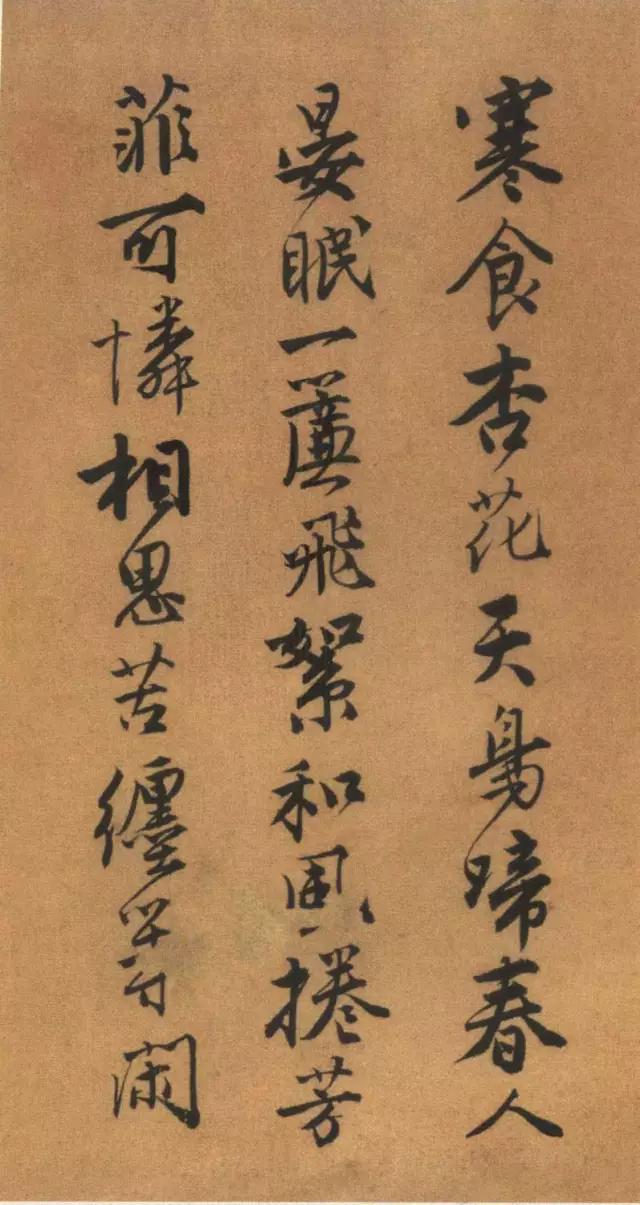 寒食杏花天鳥啼春人
晏眠一簾飛絮和風捲芳
菲可憐相思苦纏等閑